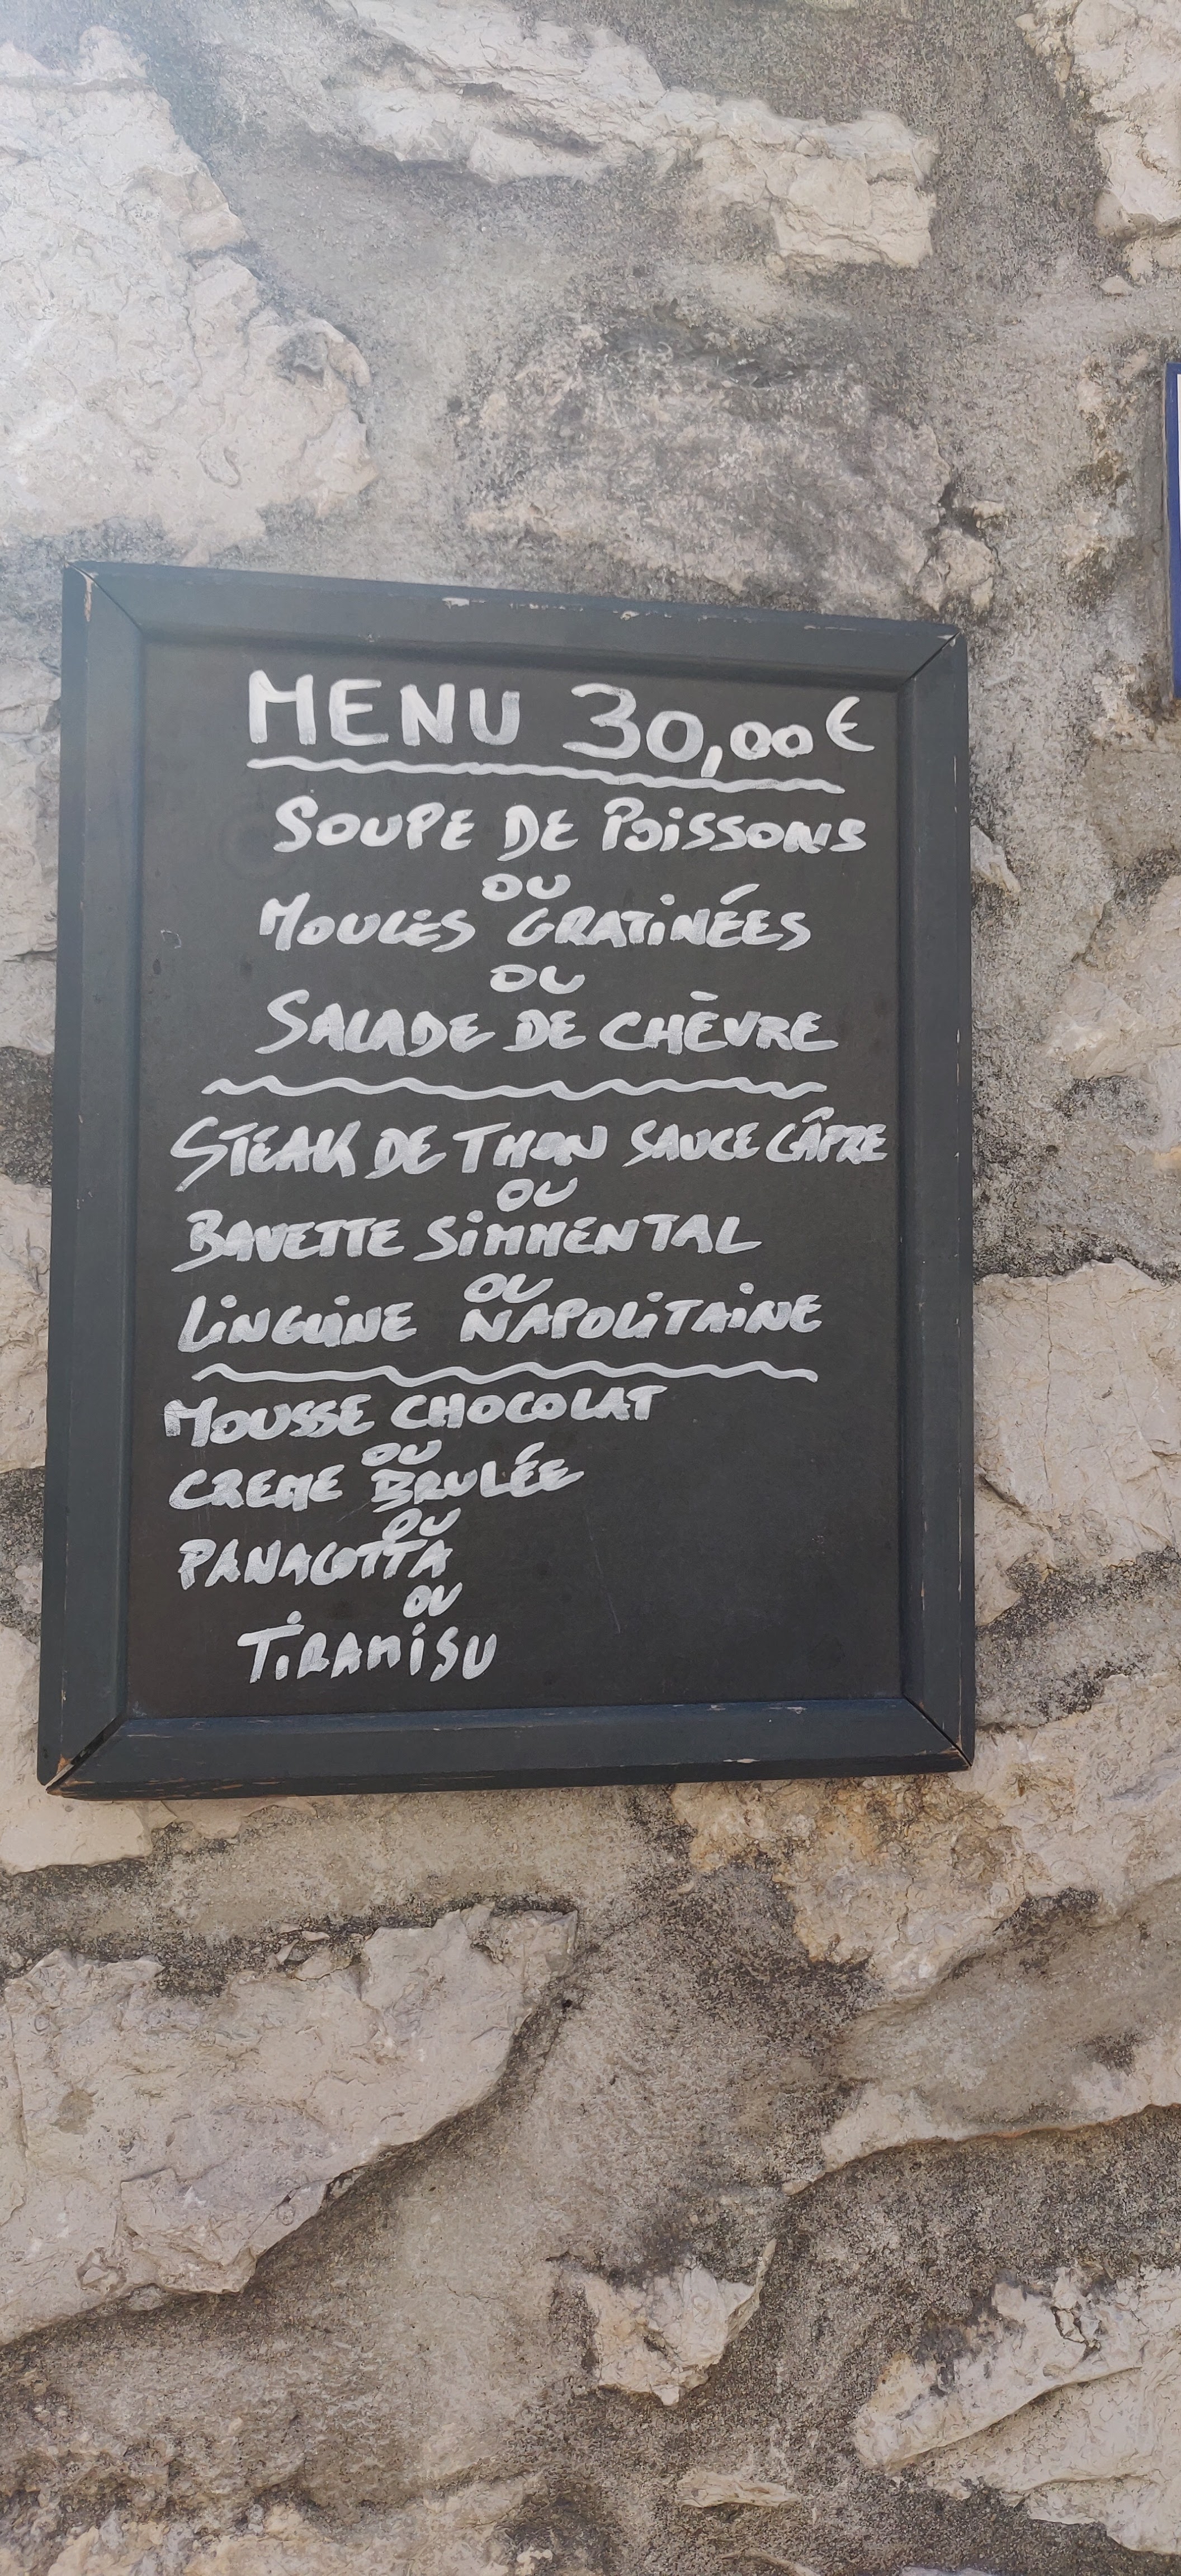 MENU 30,00€
SOUPE DE POiSSONS
OU
MOULES GRATiNÉES
OU
SALADE DE CHÈVRE
STEAK DE THON SAUCE CÂPRE
OU
BAVETTE SiMMENTAL
OU
LiNGUiNE NAPOLiTAiNE
MOUSSE CHOCOLAT
OU
CREME BRULÉE
OU
PANACOTTA
OU
TiRAMiSU